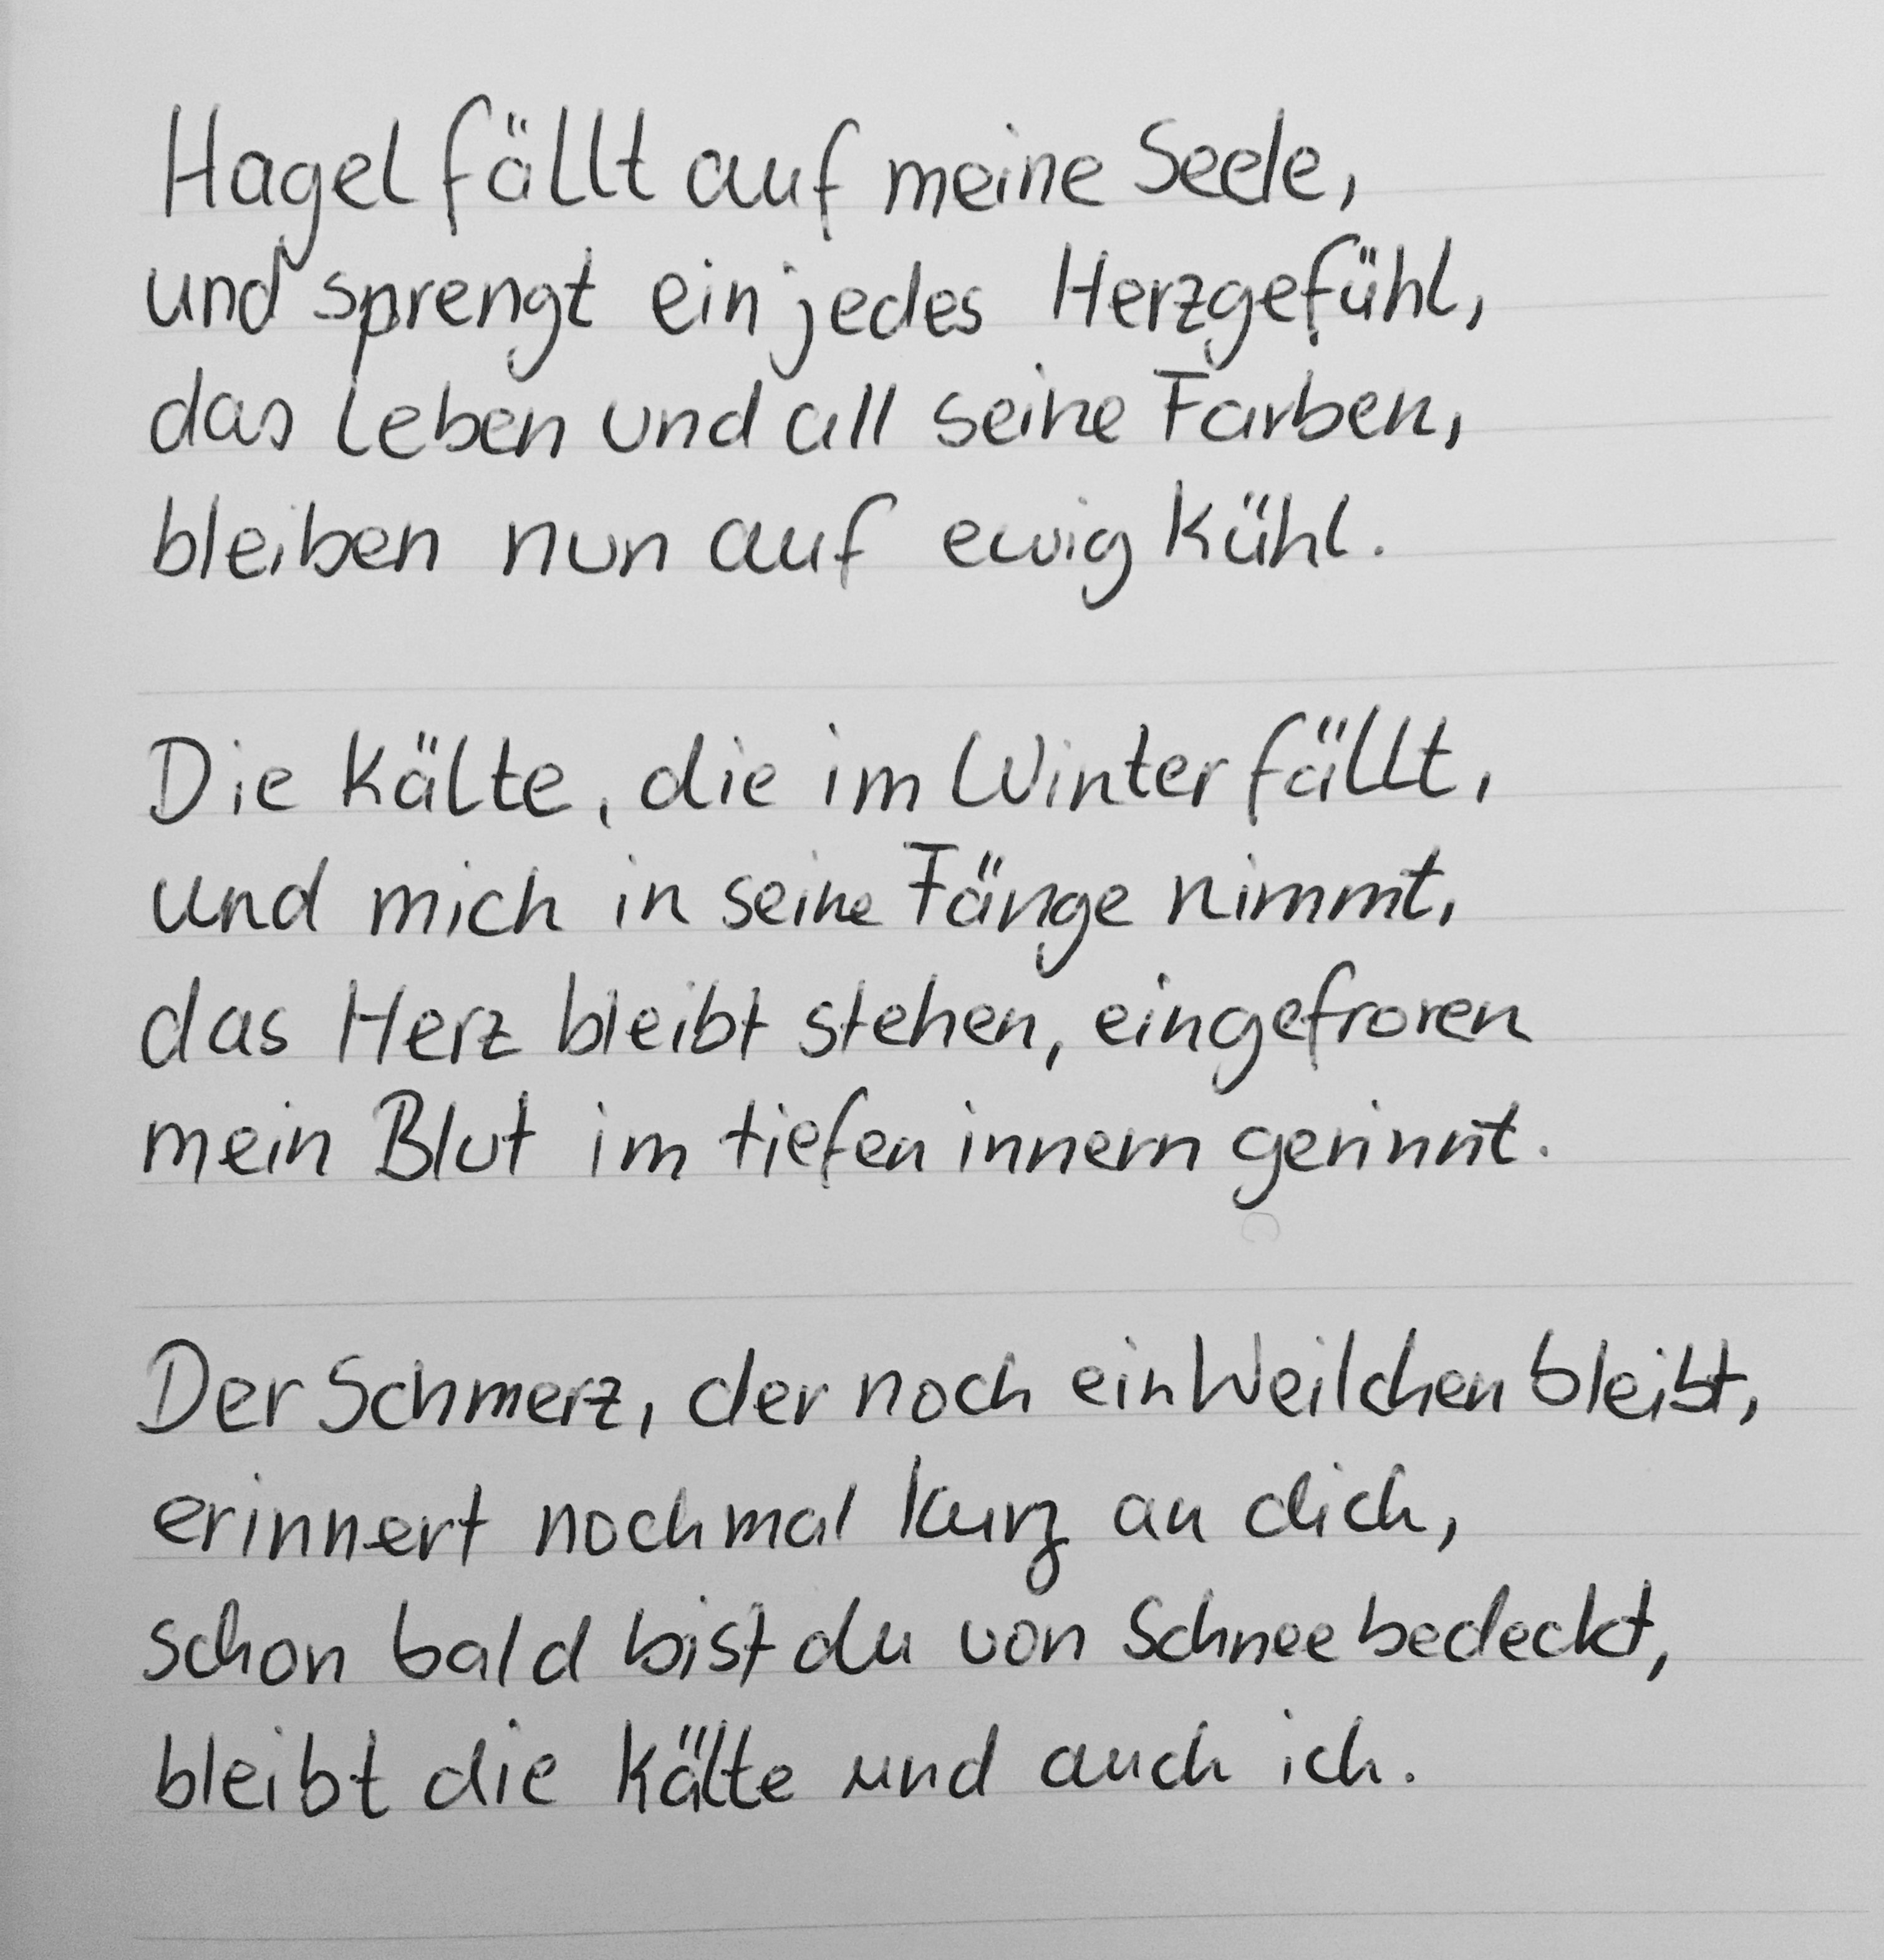 Hagel fällt auf meine Seele,
und sprengt ein jedes Herzgefühl,
das Leben und all seine Farben,
bleiben nun auf ewig kühl.
Die Kälte, die im Winter fällt,
und mich in seine Fänge nimmt,
das Herz bleibt stehen, eingefroren
mein Blut im tiefen innern gerinnt.
Der Schmerz, der noch ein Weilchen bleibt,
erinnert nochmal kurz an dich,
schon bald bist du von Schnee bedeckt,
bleibt die Kälte und auch ich.